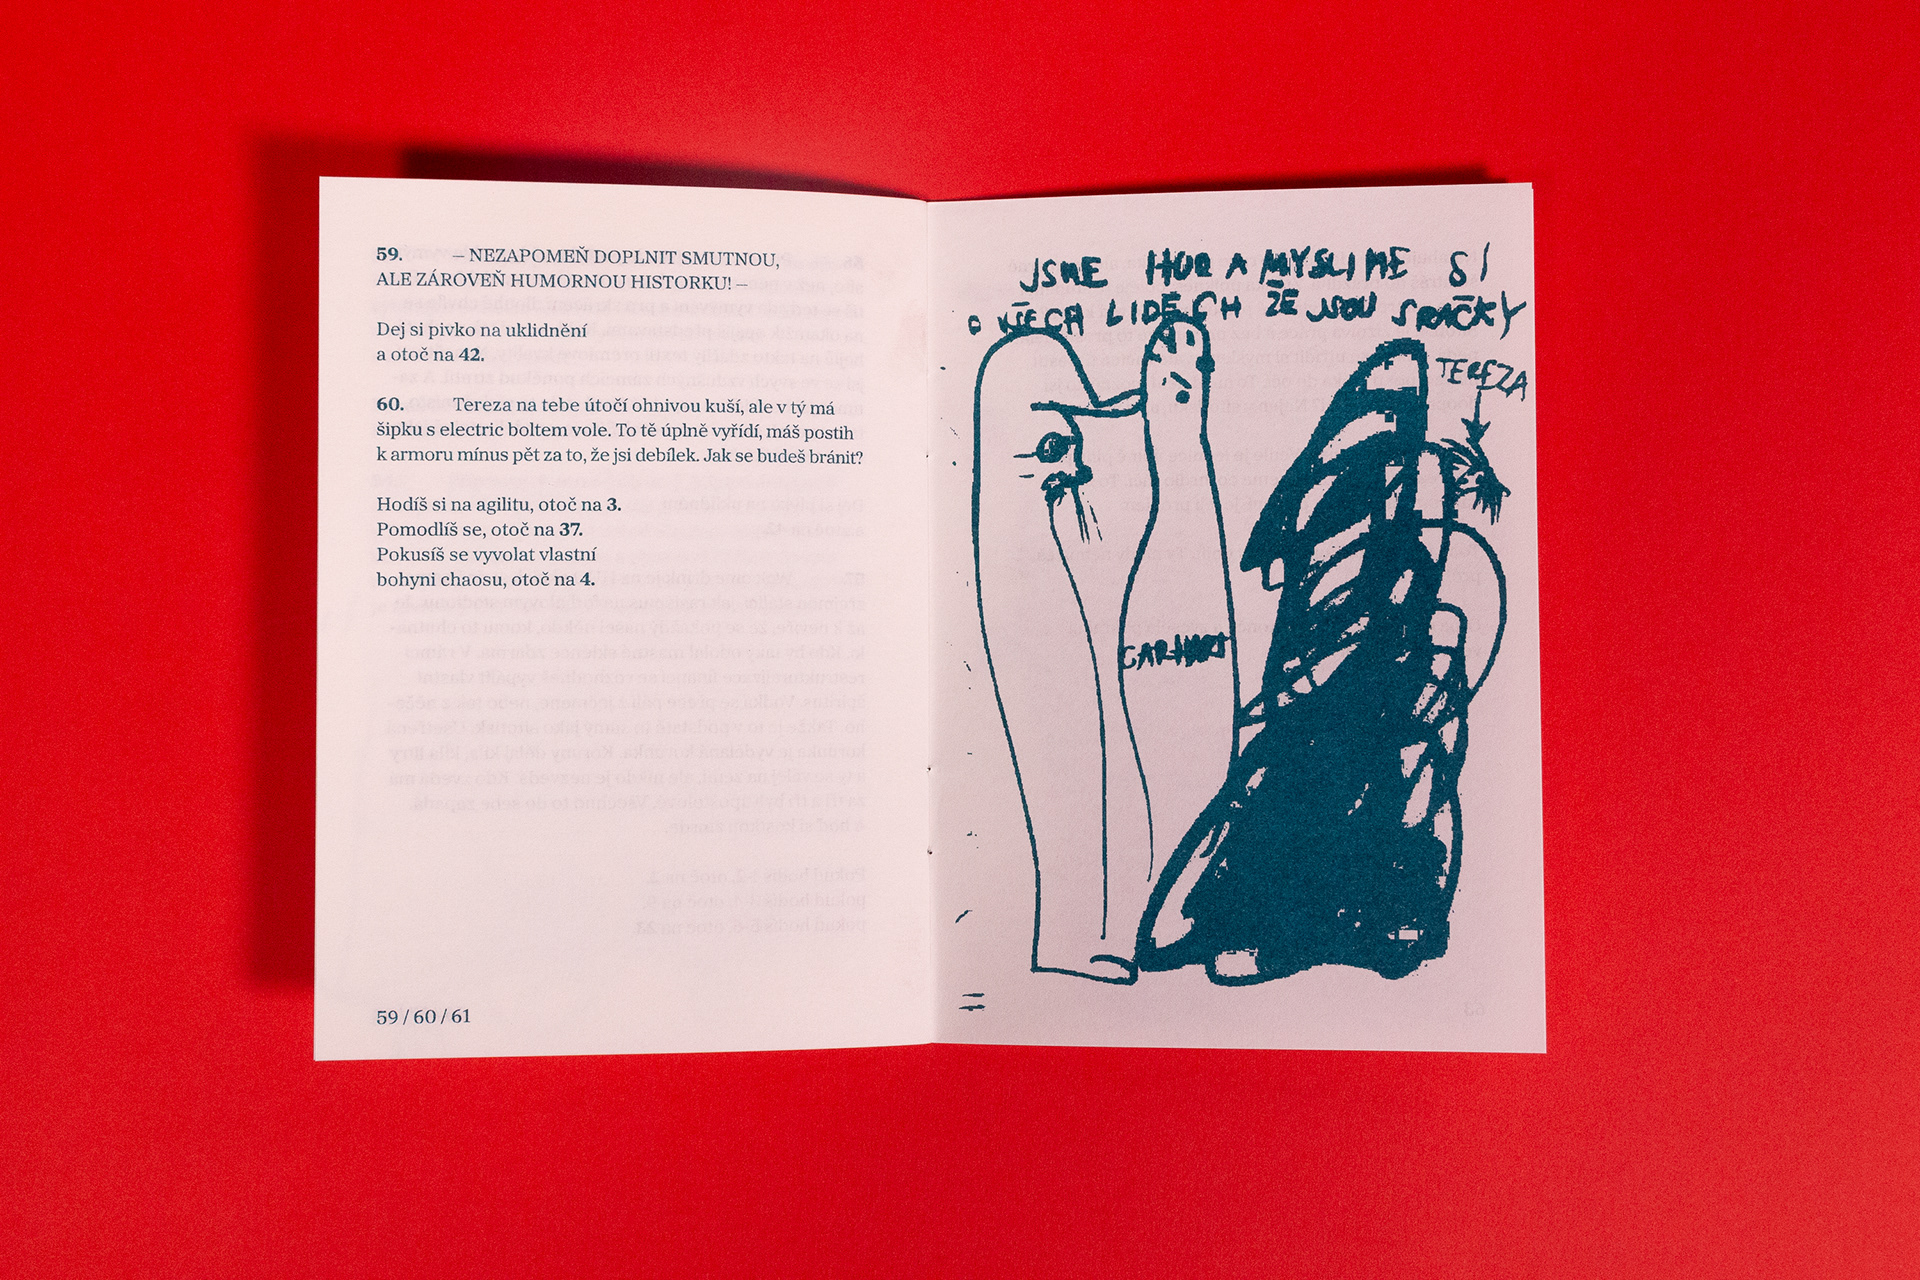 59. – NEZAPOMEŇ DOPLNIT SMUTNOU,
ALE ZÁROVEŇ HUMORNOU HISTORKU! –
Dej si pivko na uklidnění
a otoč na 42.
60. Tereza na tebe útočí ohnivou kuší, ale v tý má
šipku s electric boltem vole. To tě úplně vyřídí, máš postih
k armoru mínus pět za to, že jsi debílek. Jak se budeš bránit?
Hodíš si na agilitu, otoč na 3.
Pomodlíš se, otoč na 37.
Pokusíš se vyvolat vlastní
bohyni chaosu, otoč na 4.
59 / 60 / 61
JSME HUR A MYSLIME SI
O VŠECH LIDECH ŽE JSOU SRAČKY
TEREZA